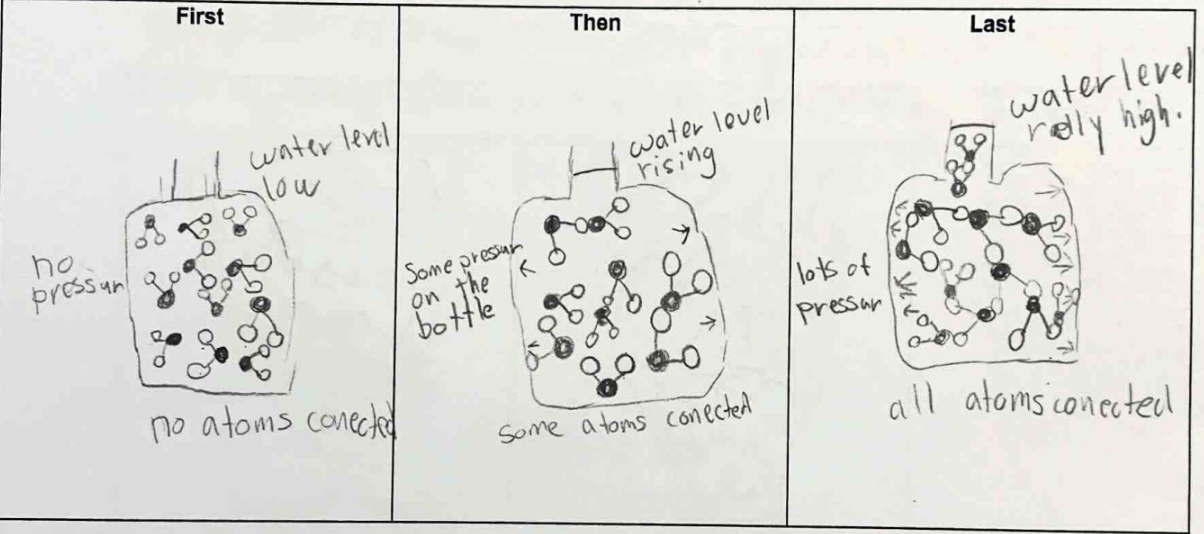 First
water level
low
no
pressur
no atoms conected
Then
water level
rising
Some pressur
on the
bottle
some atoms conected
Last
water level
relly high.
lots of
pressur
all atoms conected